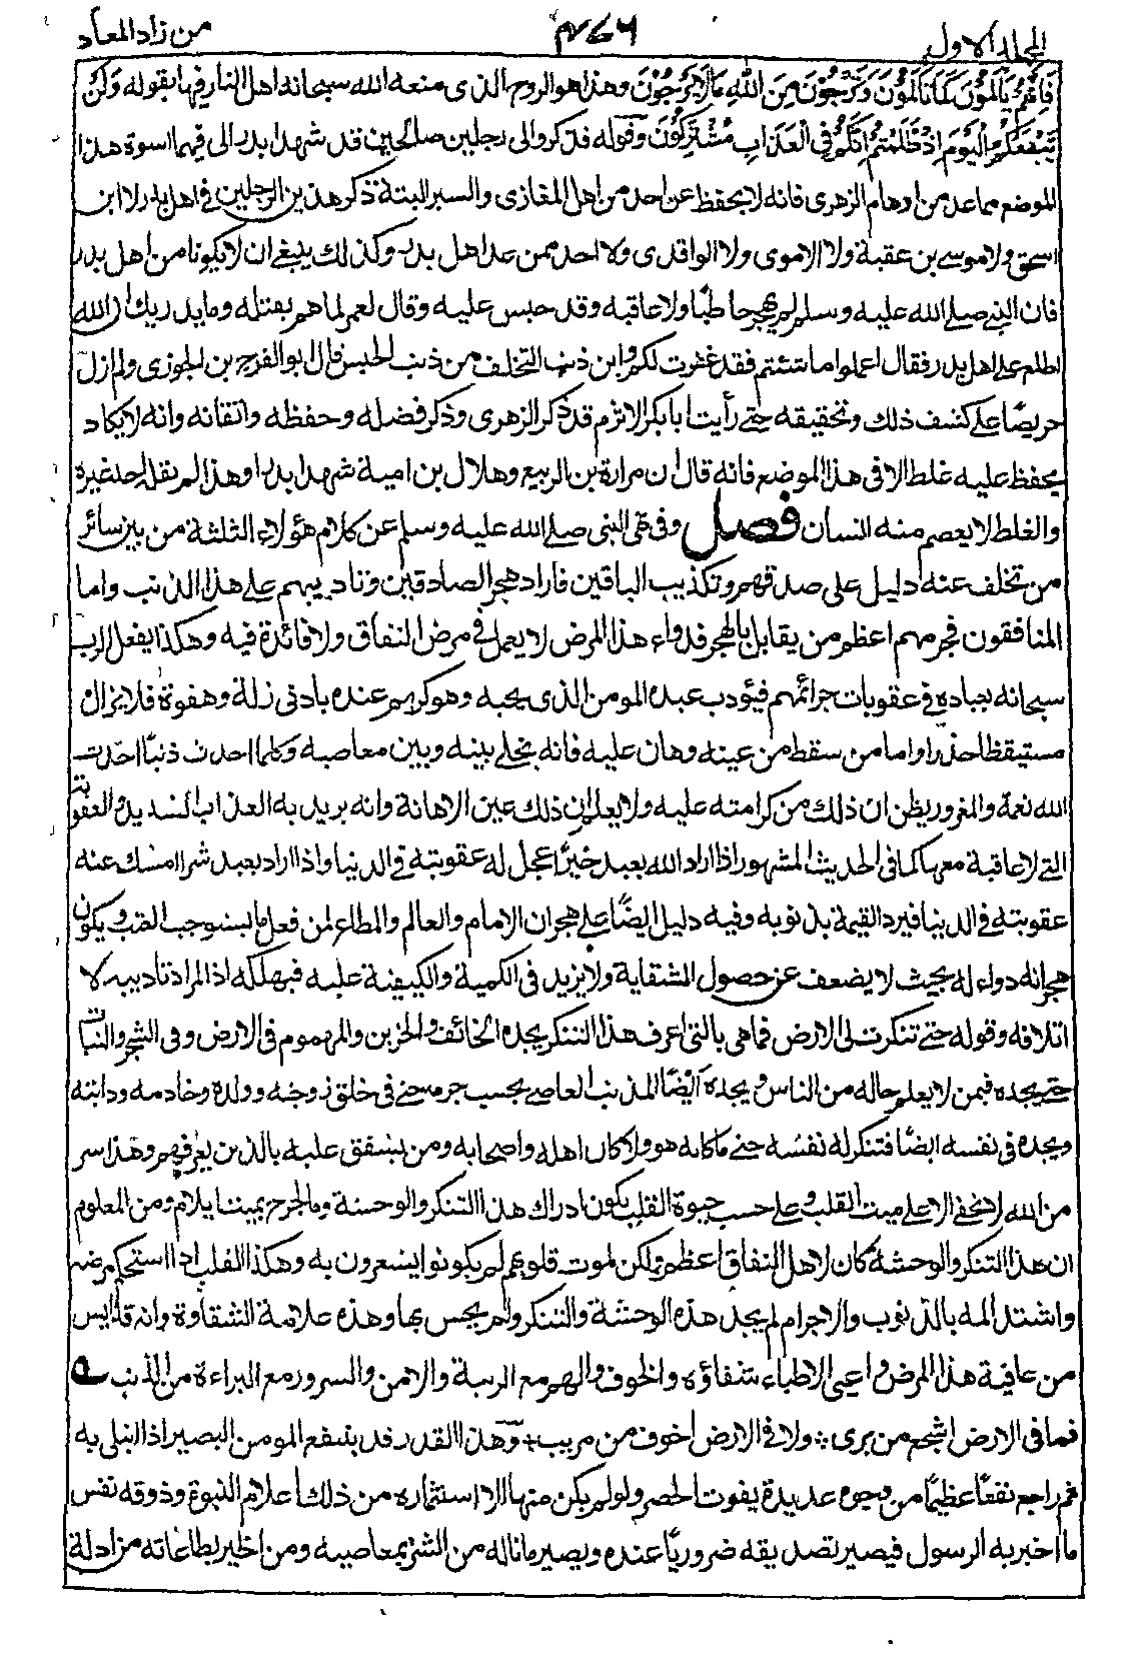 المجلد الاول
٤٧٦
من زاد المعاد
فَاِنَّهُمْ يَأْلَمُوْنَ كَمَا تَأْلَمُوْنَ وَتَرْجُوْنَ مِنَ اللّٰهِ مَا لَا يَرْجُوْنَ وهذا هو الروح الذى منعه الله سبحانه اهل النار فيها بقوله وَلَنْ
يَّنْفَعَكُمُ الْيَوْمَ اِذْ ظَلَمْتُمْ اَنَّكُمْ فِى الْعَذَابِ مُشْتَرِكُوْنَ وقوله فذكروا لى رجلين صالحين قد شهدا بدرا لى فيهما اسوة هذا
الموضع مما عد من اوهام الزهرى فانه لا يحفظ عن احد من اهل المغازى والسير البتة ذكر هذين الرجلين فى اهل بدر لا ابن
اسحق ولا موسى بن عقبة ولا الاموى ولا الواقدى ولا احد ممن عد اهل بدر وكذلك ينبغى ان لا يكونا من اهل بدر
فان النبى صلى الله عليه وسلم لم يهجر حاطبًا ولا عاقبه وقد جس عليه وقال لعمر لما هم بقتله وما يدريك ان الله
اطلع على اهل بدر فقال اعملوا ما شئتم فقد غفرت لكم واين ذنب التخلف من ذنب الجس قال ابو الفرج بن الجوزى ولم ازل
حريصًا على كشف ذلك وتحقيقه حتى رأيت ابا بكر الاثرم قد ذكر الزهرى وذكر فضله وحفظه واتقانه وانه لا يكاد
يحفظ عليه غلط الا فى هذا الموضع فانه قال ان مرارة بن الربيع وهلال بن امية شهدا بدرا وهذا لم يقله احد غيره
والغلط لا يعصم منه انسان فصل وفى نهى النبى صلى الله عليه وسلم عن كلام هؤلاء الثلثة من بين سائر
من تخلف عنه دليل على صدقهم وتكذيب الباقين فاراد هجر الصادقين وتاديبهم على هذا الذنب واما
المنافقون فجرمهم اعظم من يقابل بالهجر فدواء هذا المرض لا يعمل فى مرض النفاق ولا فائدة فيه وهكذا يفعل الرب
سبحانه بعباده فى عقوبات جرائمهم فيؤدب عبده المومن الذى يحبه وهو كريم عنده بادنى زلة وهفوة فلا يزال
مستيقظا حذرا واما من سقط من عينه وهان عليه فانه يخلى بينه وبين معاصيه وكلما احدث ذنبًا احدث
الله نعمة والمغرور يظن ان ذلك من كرامته عليه ولا يعلم ان ذلك عين الاهانة وانه يريد به العذاب الشديد والعقوبة
التى لا عاقبة معها كما فى الحديث المشهور اذا اراد الله بعبد خيرًا عجل له عقوبته فى الدنيا واذا اراد بعبد شرا امسك عنه
عقوبته فى الدنيا فيرد القيمة بذنوبه وفيه دليل ايضًا على هجران الامام والعالم والمطاع لمن فعل ما يستوجب العتب ويكون
هجرانه دواء له بحيث لا يضعف عن حصول الشفاية ولا يزيد فى الكمية والكيفية عليه فيهلكه اذ المراد تاديبه لا
اتلافه وقوله حتى تنكرت لى الارض فما هى بالتى اعرف هذا التنكر يجده الخائف والحزين والمهموم فى الارض وفى الشجر والنبات
حتى يجده فيمن لا يعلم حاله من الناس ويجده ايضًا المذنب العاصى بحسب جرمه حتى فى خلق زوجته وولده وخادمه ودابته
ويجده فى نفسه ايضًا فتتنكر له نفسه حتى ما كانه هو ولا كان اهله واصحابه ومن يشفق عليه بالذين يعرفهم وهذا سر
من الله لا يخفى الا على ميت القلب وعلى حسب حيوة القلب يكون ادراك هذا التنكر والوحشة وما لجرح بميت ايلام ومن المعلوم
ان هذا التنكر والوحشة كان لاهل النفاق اعظم ولكن لموت قلوبهم لم يكونوا يشعرون به وهكذا القلب اذا استحكم مرضه
واشتد المه بالذنوب والاجرام لم يجد هذه الوحشة والتنكر ولم يحس بها وهذه علامة الشقاوة وانه قد ايس
من عافية هذا المرض واعيى الاطباء شفاؤه والخوف والهم مع الريبة والامن والسرور مع البراءة من الذنب
فما فى الارض اشجع من برى ولا فى الارض اخوف من مريب وهذا القدر قد ينتفع المومن البصير اذا ابتلى به
ثم راجع نفعًا عظيمًا من وجوه عديدة يفوت الحصر ولو لم يكن منها الا استثماره من ذلك اعلام النبوة وذوقه نفس
ما اخبر به الرسول فيصير تصديقه ضروريًا عنده ويصير ما ناله من الشر بمعاصيه ومن الخير بطاعاته من ادلة